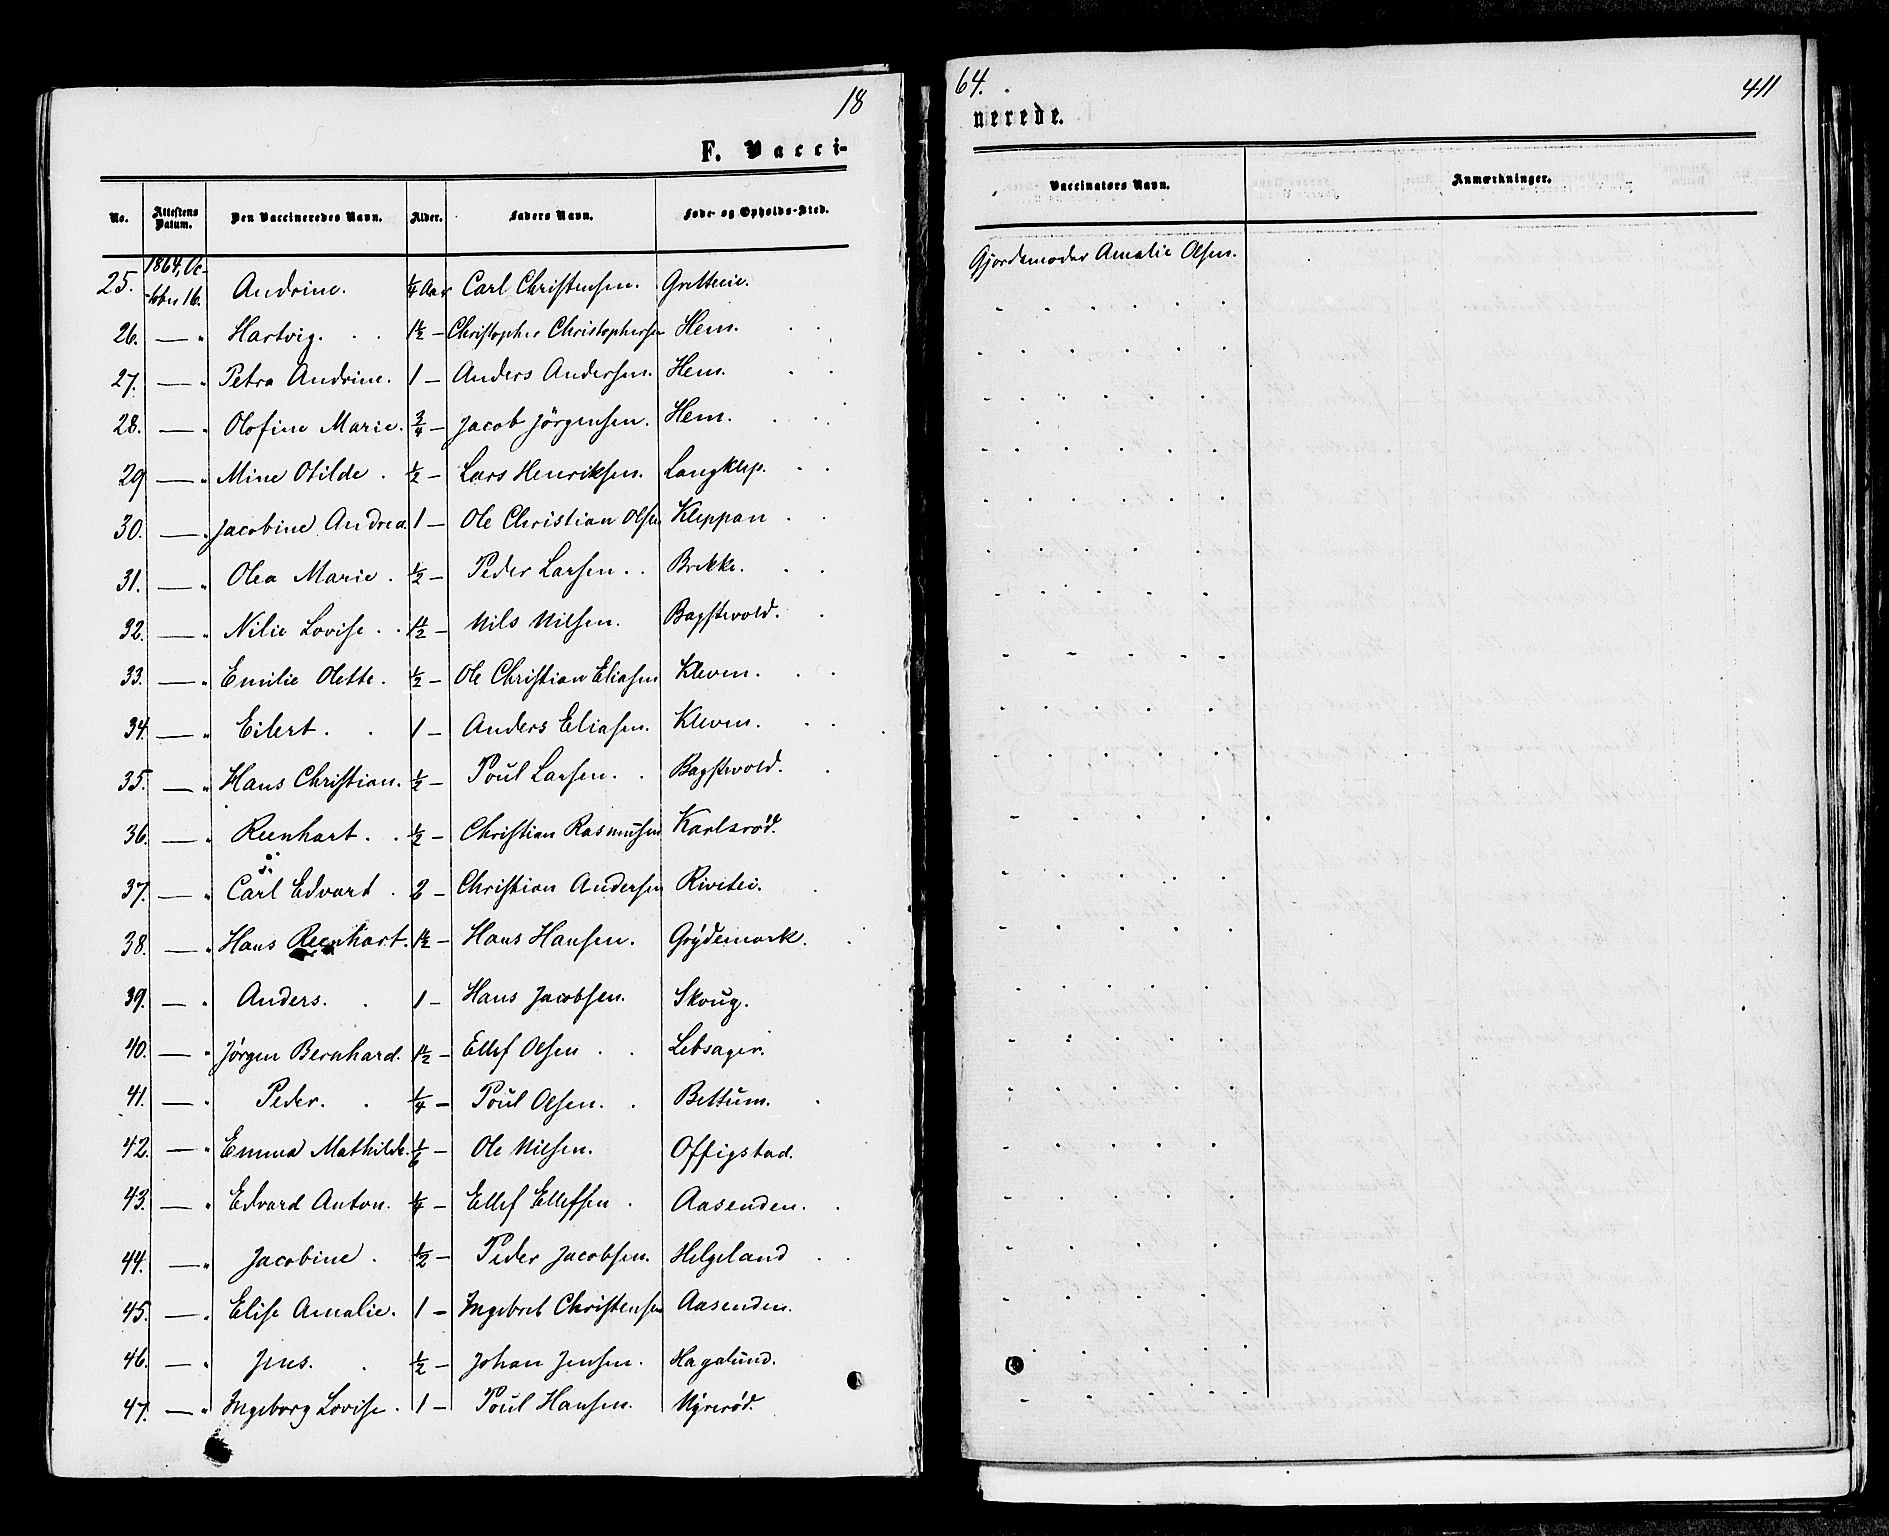 18
F. Vacci-
No. Attestens Datum. Den Vaccineredes Navn. Alder. Faders Navn. Føde- og Opholds-Sted.
25. 1864, Oc-tober 16. Andrine. 1/4 Aar Carl Christensen.
26. — " Hartvig. 1 1/2 — Christopher Christophersen Hem.
27. — " Petra Andrine. 1 — Anders Andersen. Hem.
28. — " Olofine Marie. 3/4 — Jacob Jörgensen. Hem.
29 — " Mine Otilde. 1/2 — Lars Henriksen. Langklep.
30. — " Jacobine Andrea. 1 — Ole Christian Olsen Kleppan
31. — " Olea Marie. 1/2 — Peder Larsen. Brekke.
32. — " Nilie Lovise. 1 1/2 — Nils Nilsen. Bagstevold.
33. — " Emilie Olette. 1/2 — Ole Christian Eliasen Kleven.
34. — " Eilert. 1 — Anders Eliasen. Kleven.
35. — " Hans Christian. 1/2 — Poul Larsen. Bagstevold.
36. — " Reenhart. 1/2 — Christian Rasmusen Karlsrød.
37. — " Carl Edvart. 2 — Christian Andersen
38. — " Hans Reenhart. 1 1/2 — Hans Hansen. Grydemork.
39. — " Anders. 1 — Hans Jacobsen. Skoug.
40. — " Jørgen Bernhard. 1 1/2 — Ellef Olsen Lebsager.
41. — " Peder. 1/4 — Poul Olsen. Bettum.
42. — " Emma Mathilde. 1/6 — Ole Nilsen. Offigstad.
43. — " Edvard Anton. 1/4 — Ellef Ellefsen Aasenden.
44. — " Jacobine. 1/2 — Peder Jacobsen. Helgeland
45. — " Elise Amalie. 1 — Ingebret Christensen Aasenden.
46. — " Jens. 1/2 — Johan Jensen. Hagalund.
47. — " Ingeborg Lovise. 1 — Poul Hansen. Nyrerød.
64.
411
nerede.
Vaccinatørs Navn. Anmærkninger.
Gjordemoder Amalie Olsen.